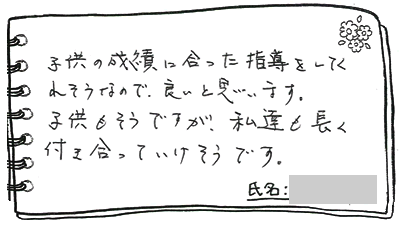 子供の成績に合った指導をしてく
れそうなので、良いと思います。
子供もそうですが、私達も長く
付き合っていけそうです。
氏名: